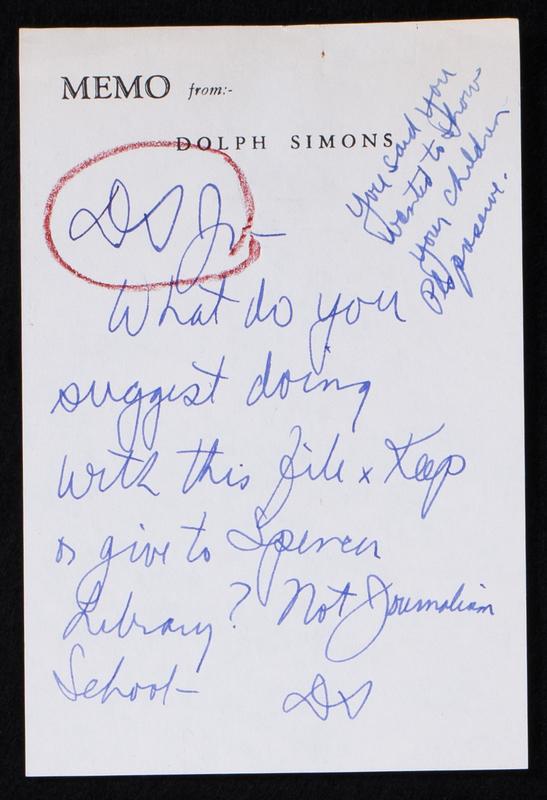 MEMO from:-
DOLPH SIMONS
You said you
wanted to show
your children
Pls preserve.
DS Jr-
What do you
suggest doing
with this file x Keep
or give to Spencer
Library? Not Journalism
School-
DS